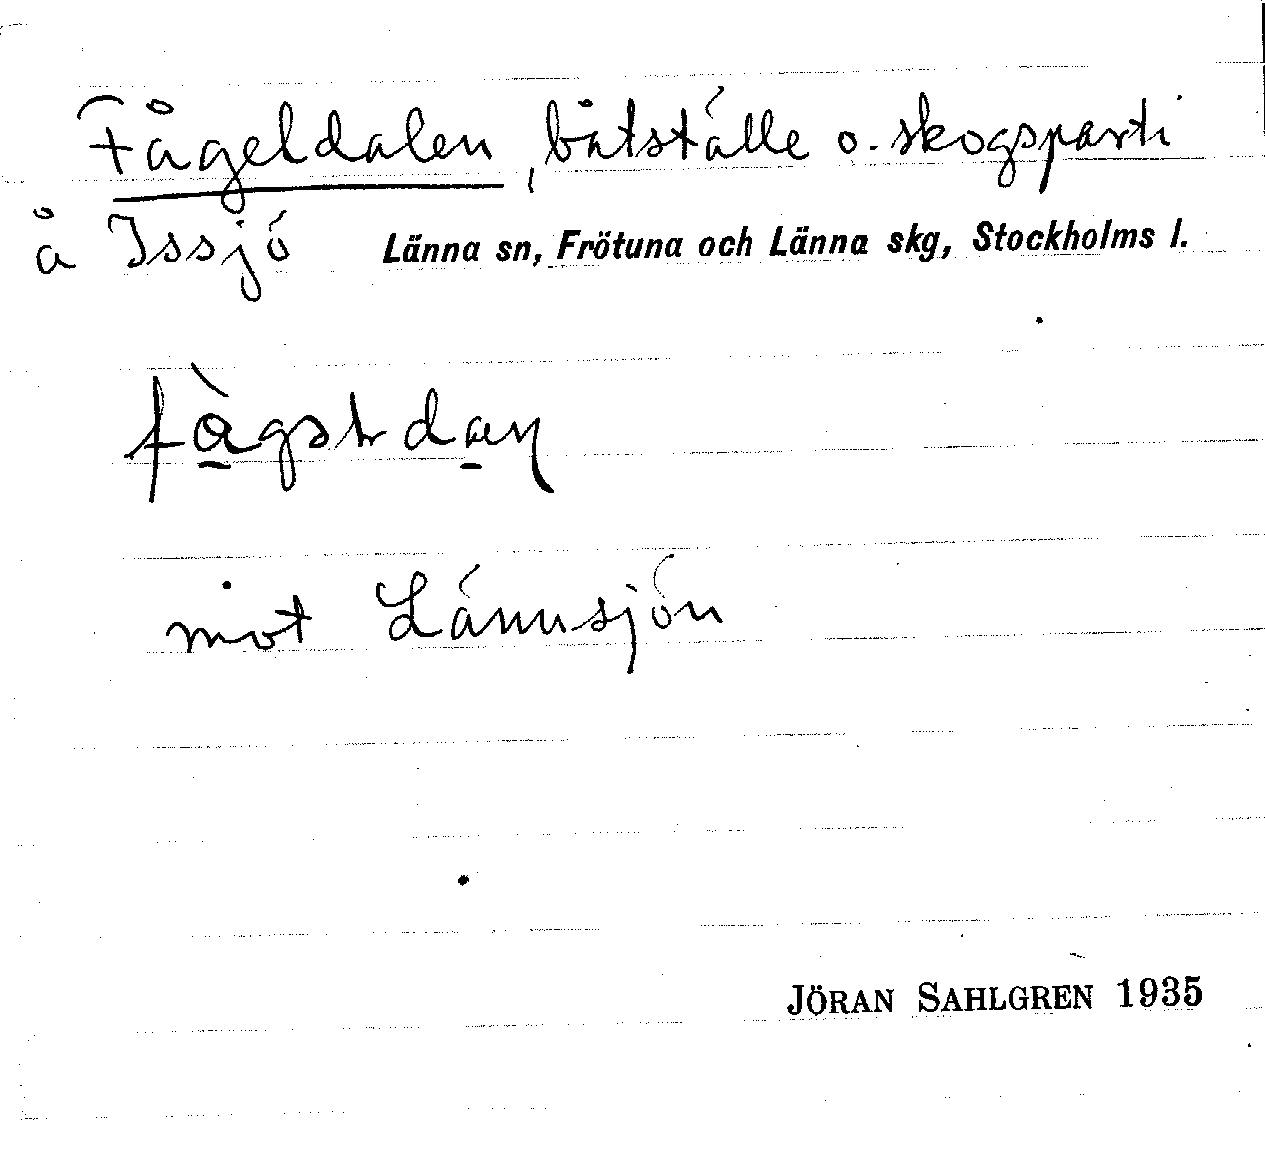 Fågeldalen, båtställe o. skogsparti
å Issjö Länna sn, Frötuna och Länna skg, Stockholms l.
mot Lännsjön
JÖRAN SAHLGREN 1935